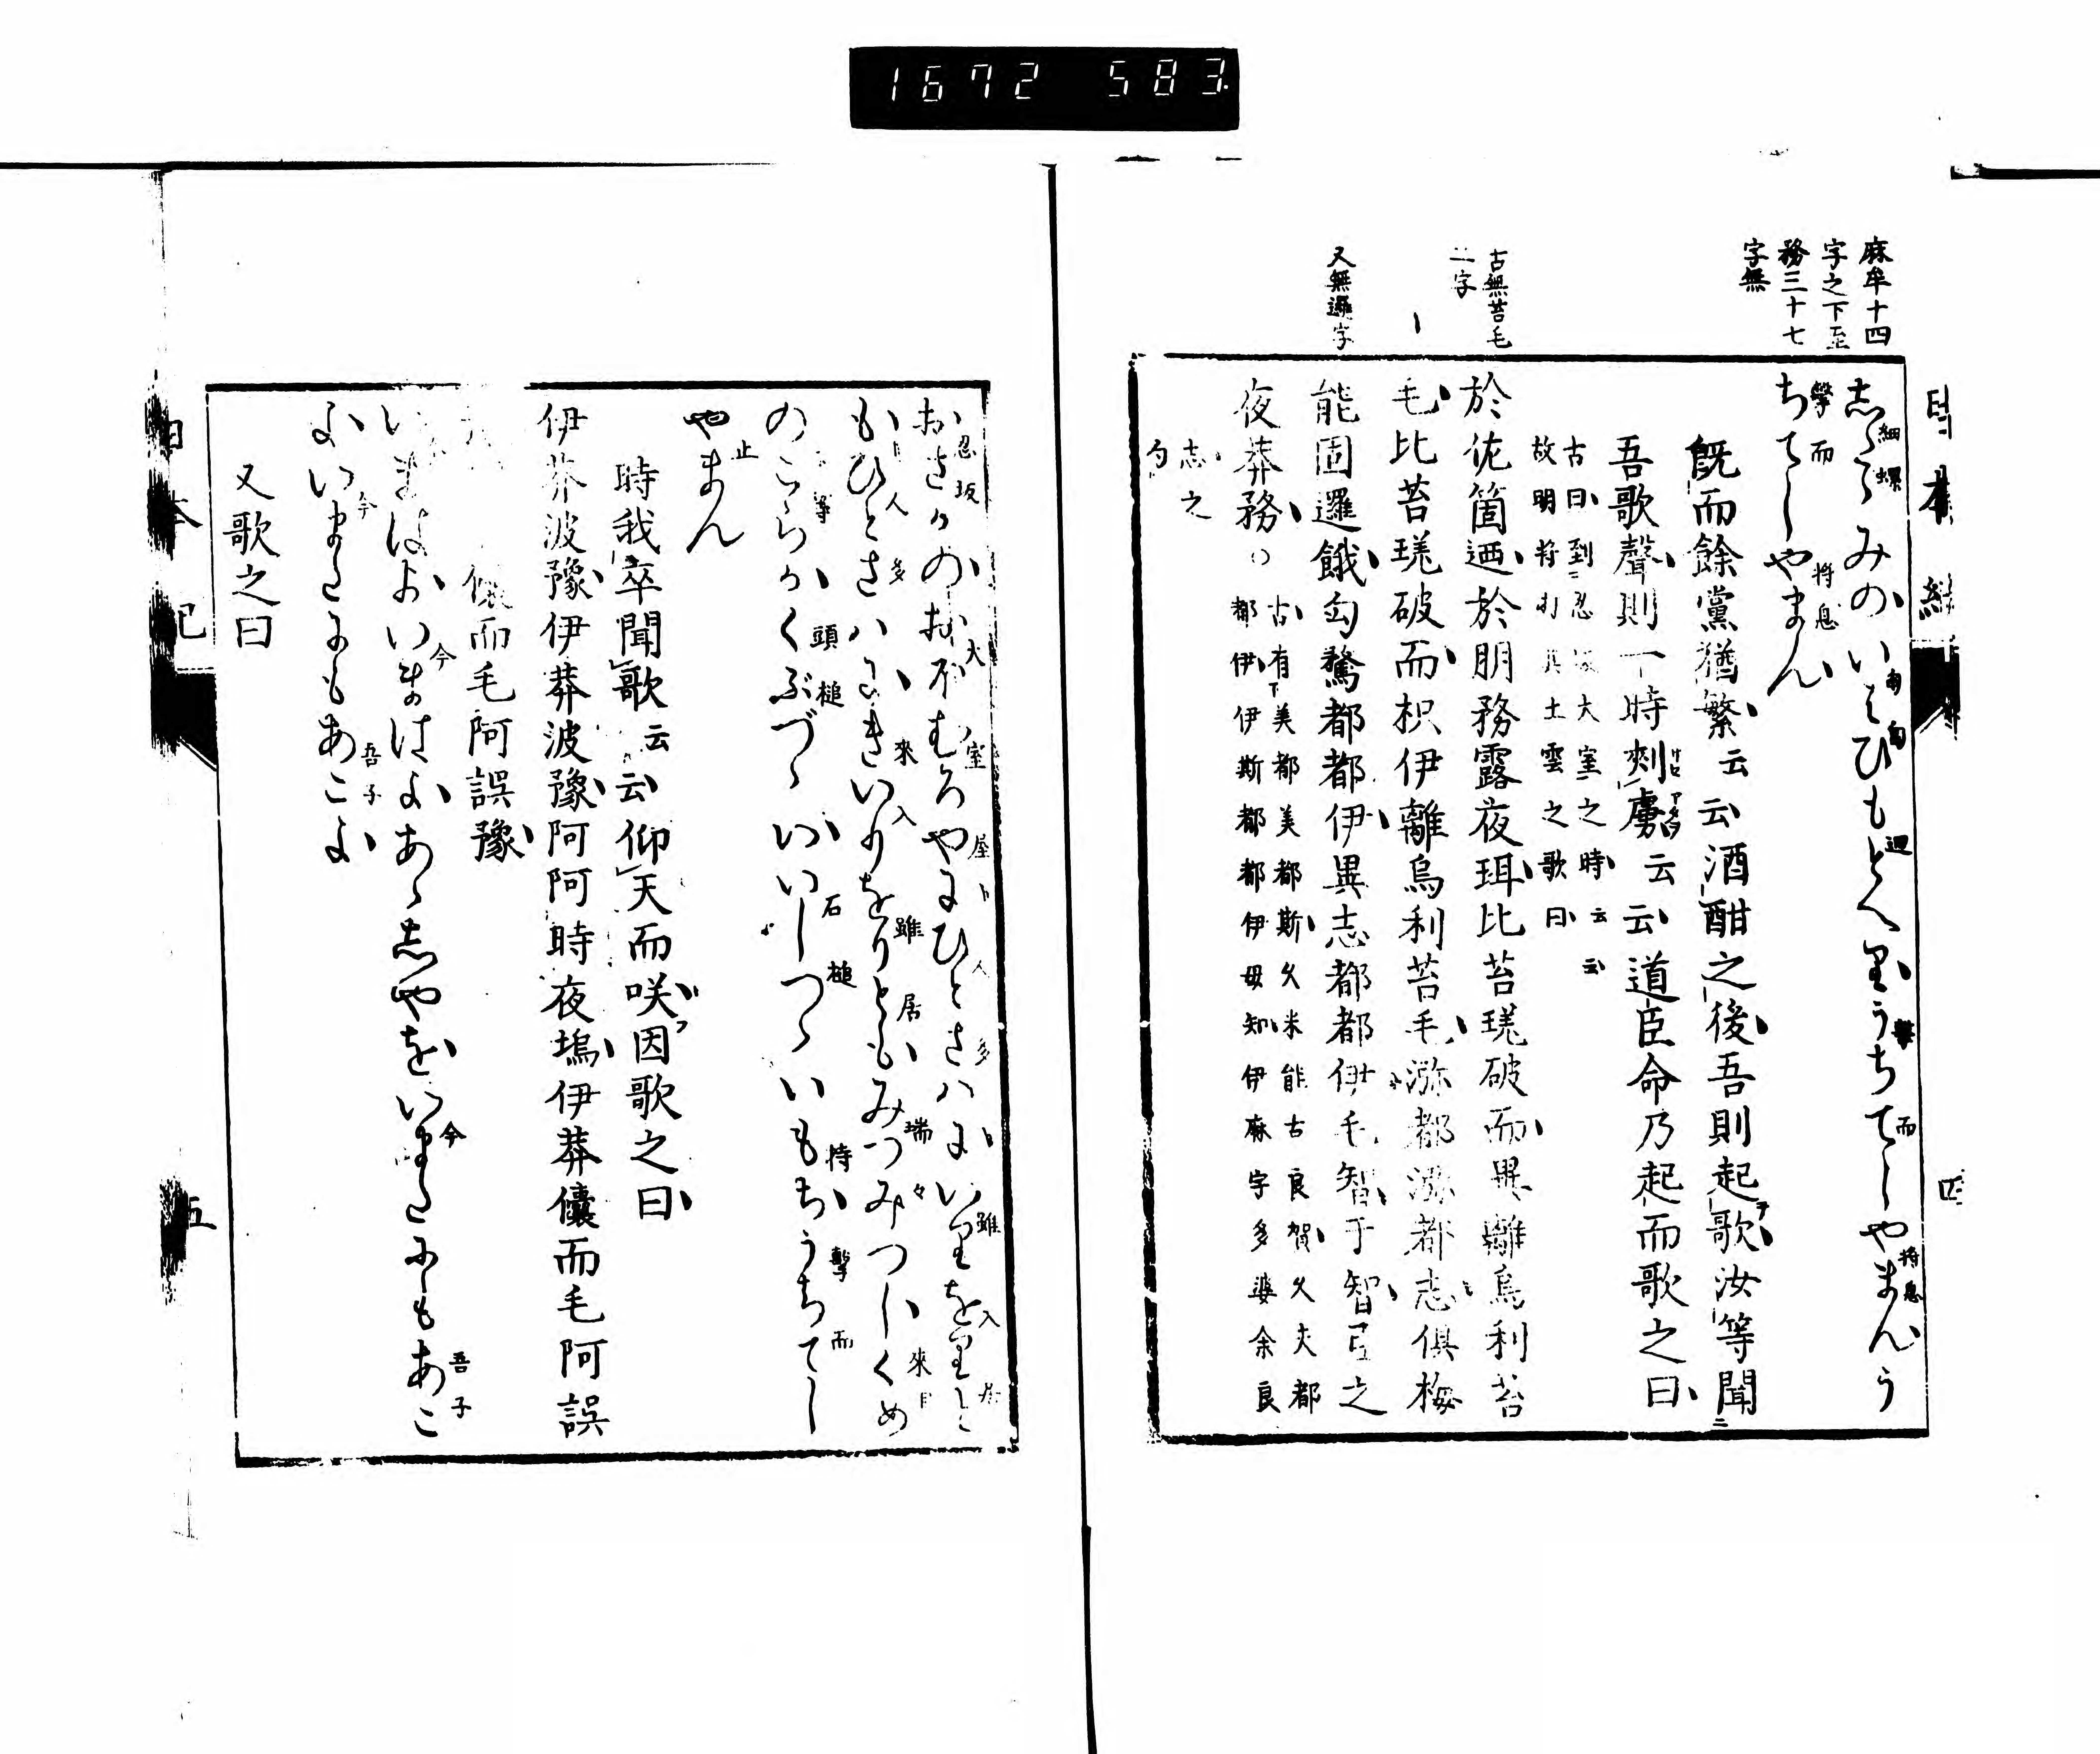 1672 583
麻牟十四
字之下至
務三十七
字無
古無苔毛
二字
又無邏字
日本紀
四
志たゝみのいはひもとへりうちてしやまんう
細螺
匍匐
廻
撃
而
将息
ちてしやまん
撃而
将息
既而餘黨猶繁云云酒酣之後吾則起歌汝等聞
吾歌聲則一時刺虜云云道臣命乃起而歌之曰
古曰到忍坂大室之時云云
故明将打其土雲之歌曰
於佐箇迺於朋務露夜珥比苔瑳破而異離烏利苔
毛比苔瑳破而枳伊離烏利苔毛瀰都瀰都志倶梅
能固邏餓勾騖都都伊異志都都伊毛智于智弖之
夜莽務
古有下美都美都斯久米能古良賀久夫都
都伊伊斯都都伊母知伊麻宇多婆余良
志之
勾
おさかのおほむろやにひとさはにいりをりと
忍坂
大室屋
人多
雖入居
もひとさはにきいりをりともみつみつしくめ
人多
來入
雖居
瑞々
來目
のこらかくぶつゝいいしつゝいもちうちてし
等
頭槌
石槌
持
撃而
やまん
止
時我卒聞歌云云仰天而咲因歌之曰
伊莽波豫伊莽波豫阿阿時夜塢伊莽儾而毛阿誤
儾而毛阿誤豫
いまはよいまはよあゝしやをいまたにもあこ
今
今
吾子
よいまたにもあこよ
今
吾子
又歌之曰
日本紀
五